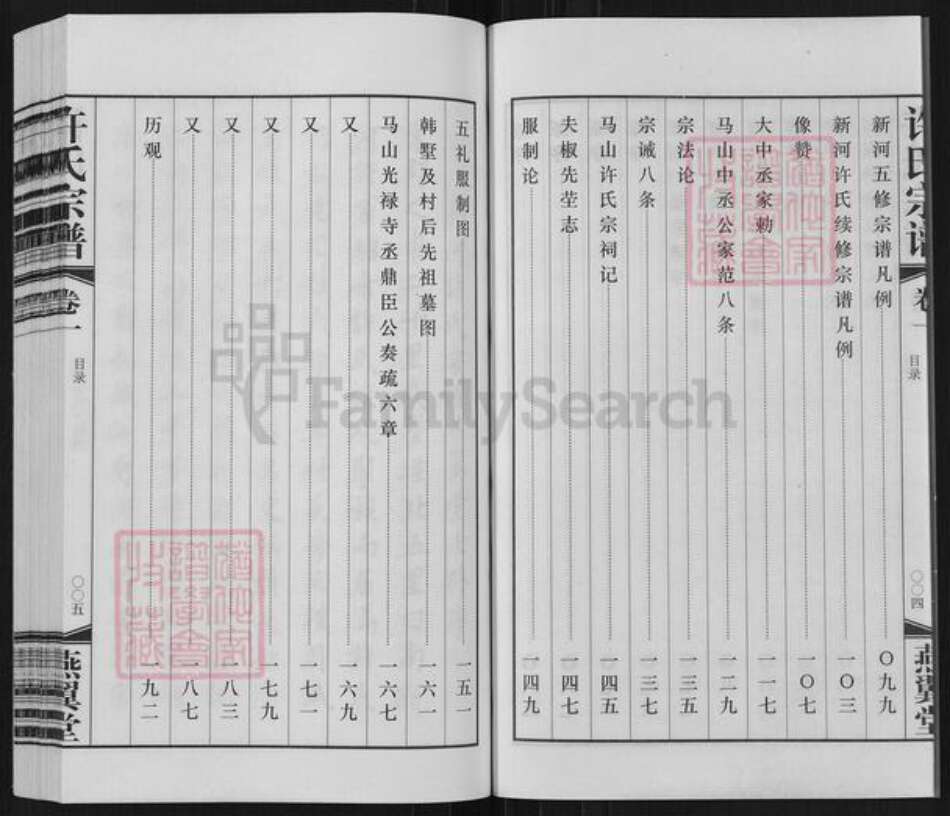 许氏宗谱
卷一
目录
〇〇四
燕翼堂
新河五修宗谱凡例 〇九九
新河许氏续修宗谱凡例 一〇三
像赞 一〇七
大中丞家勅 一一七
马山中丞公家范八条 一二九
宗法论 一三五
宗诫八条 一三七
马山许氏宗祠记 一四五
夫椒先茔志 一四七
服制论 一四九
五礼服制图 一五一
韩墅及村后先祖墓图 一六一
马山光禄寺丞鼎臣公奏疏六章 一六七
又 一六九
又 一七一
又 一七九
又 一八三
又 一八七
历观 一九二
许氏宗谱
卷一
目录
〇〇五
燕翼堂
FamilySearch